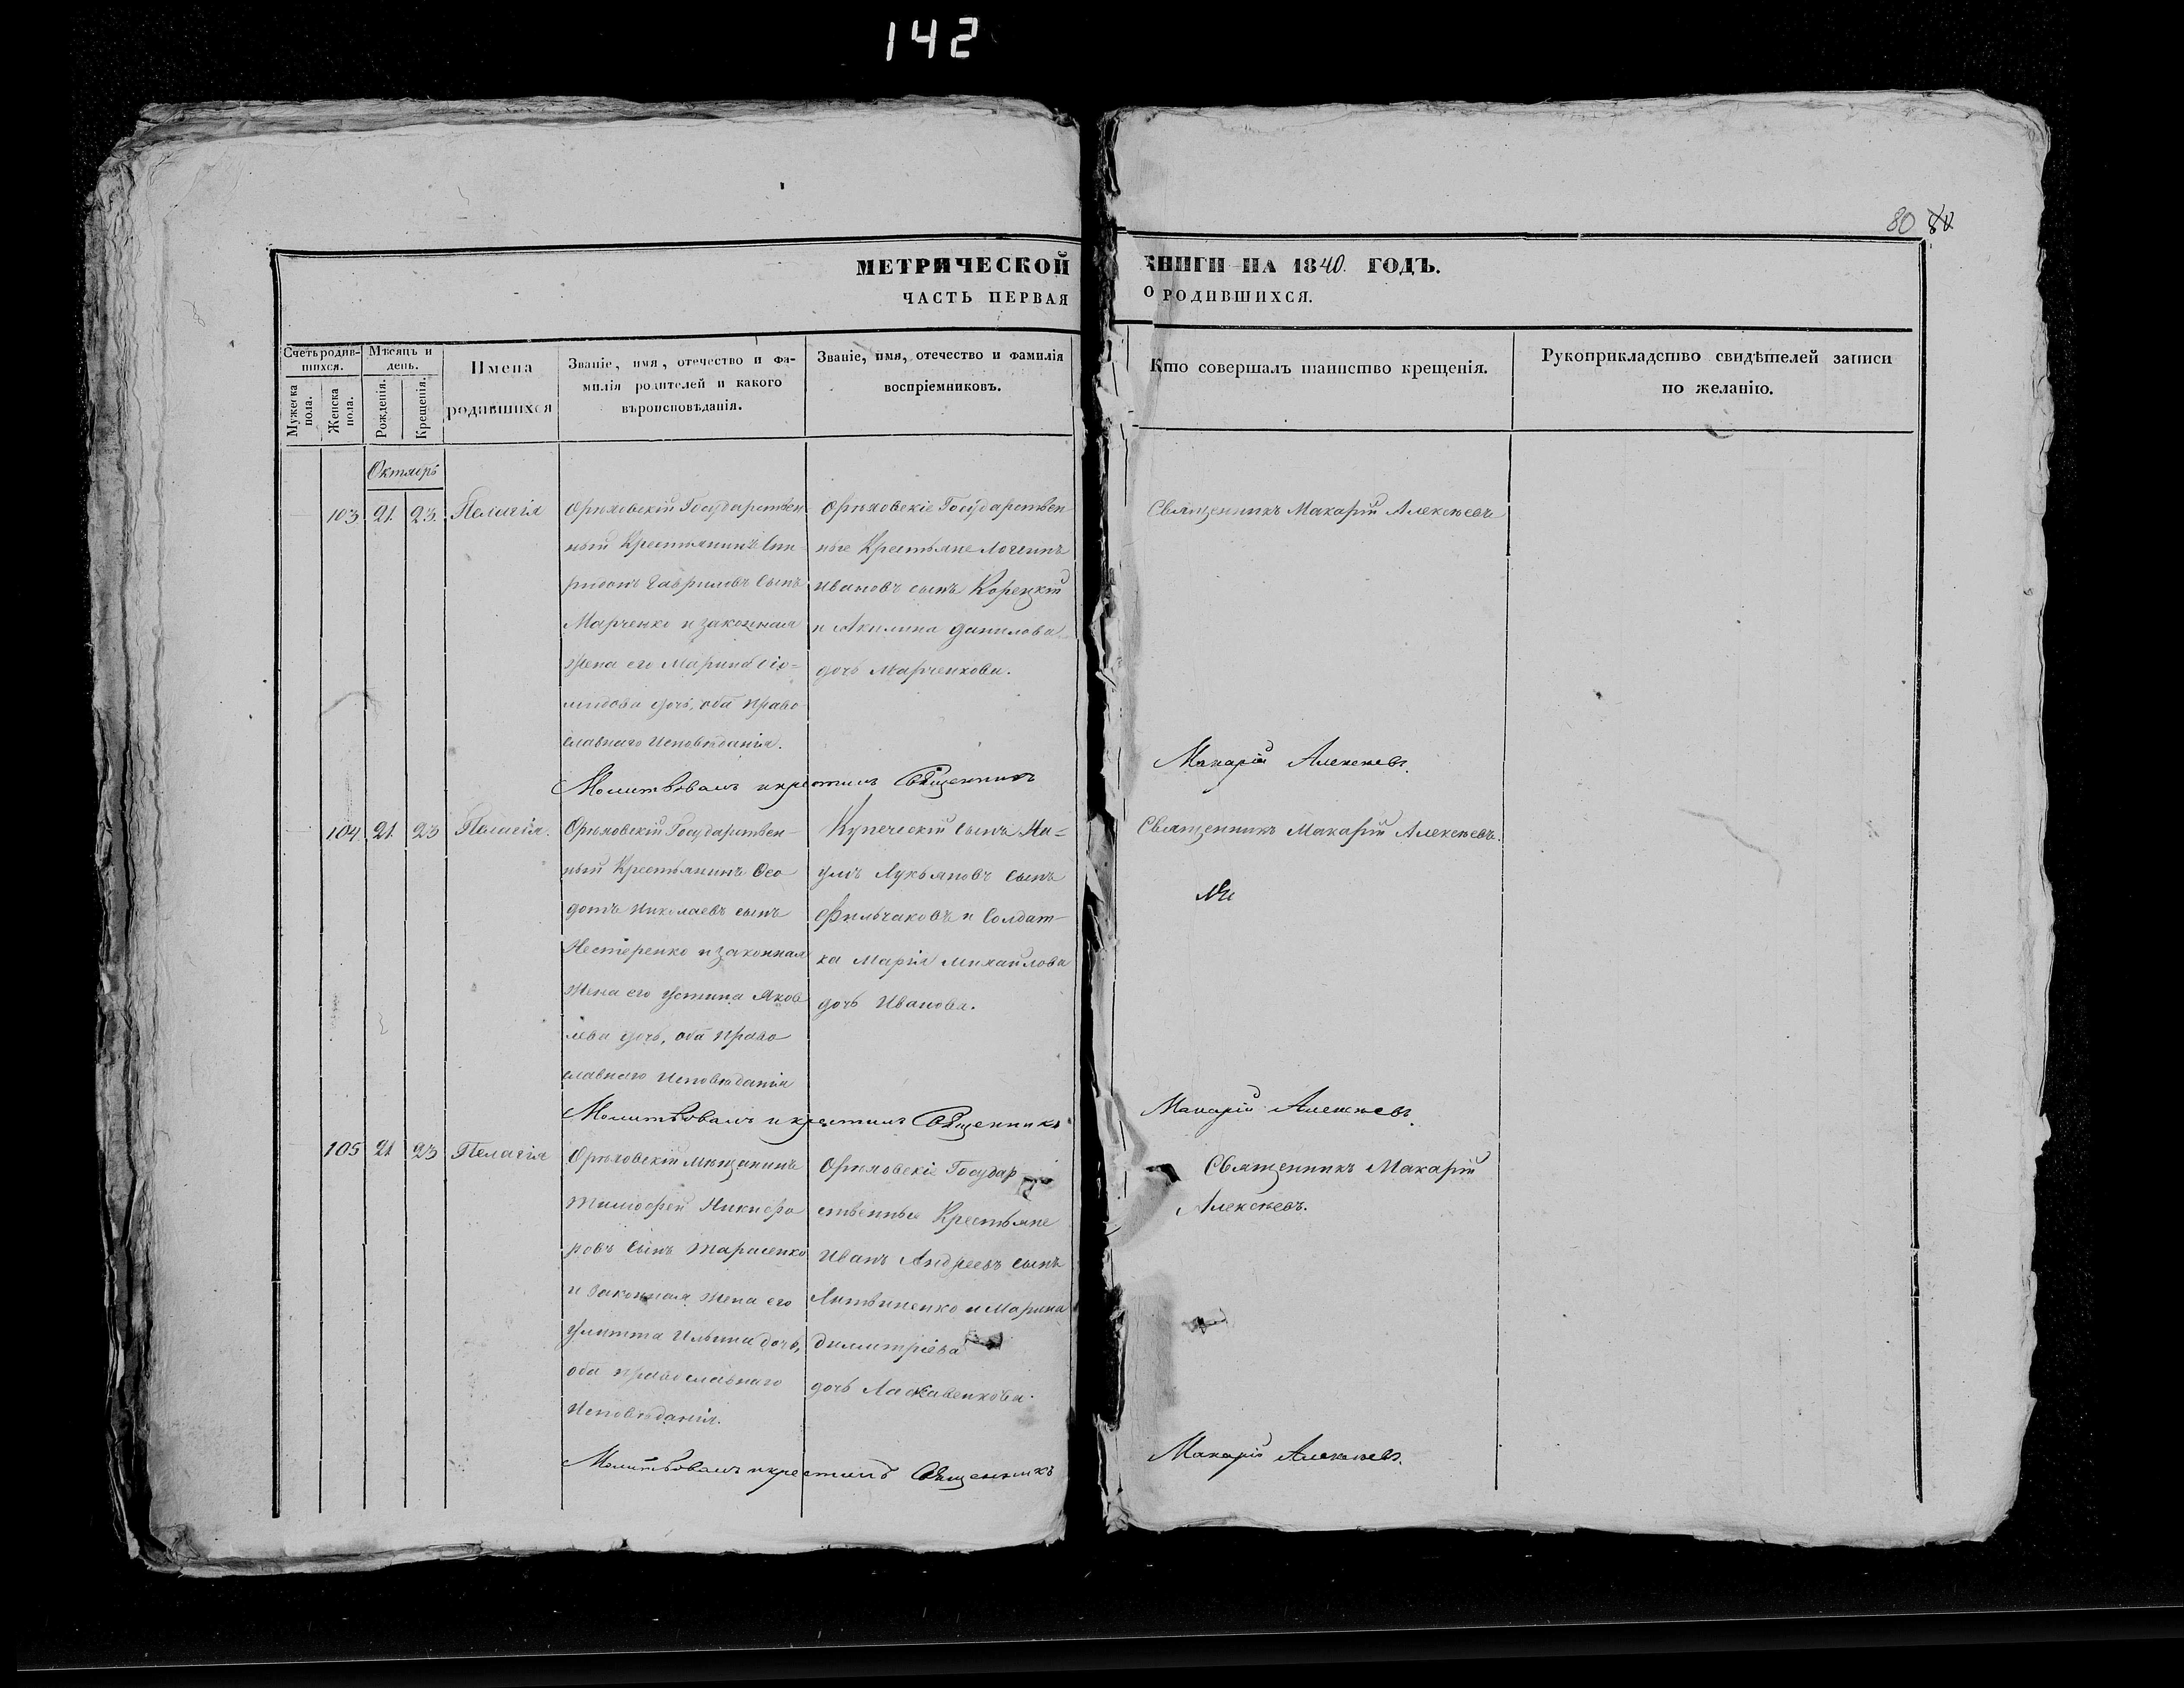 142
80
МЕТРИЧЕСКОЙ КНИГИ НА 1840. ГОДЪ.
ЧАСТЬ ПЕРВАЯ О РОДИВШИХСЯ.
Счетъ родив-
шихся.
Мужеска пола.
Женска пола.
Мѣсяцъ и
день.
Рожденія.
Крещенія.
Имена
родившихся
Званіе, имя, отечество и фа-
милія родителей и какого
вѣроисповѣданія.
Званіе, имя, отечество и фамилія
воспріемниковъ.
Кто совершалъ таинство крещенія.
Рукоприкладство свидѣтелей записи
по желанію.
Октябрь
103 21. 23. Пелагія
Орѣховскій Государствен
ный Крестьянинъ Спи-
ридонъ Гавриловъ сынъ
Марченко и законная
жена его Марина Діо-
мидова дочь, оба право
славнаго Исповѣданія.
Орѣховскіе Государствен
ные Крестьяне Логгинъ
Ивановъ сынъ Корецкій
и Акилина Данилова
дочь Марченкова.
Священникъ Макарій Алексѣевъ
Молитвовалъ и крестилъ Священникъ Макарій Алексѣевъ.
104 21. 23 Пелагія.
Орѣховскій Государствен-
ный Крестьянинъ Ѳео
дотъ Николаевъ сынъ
Нестеренко и законная
жена его Устина Яков
лева дочь, оба право
славнаго Исповѣданія
Купеческій сынъ На-
умъ Лукьяновъ сынъ
Фильчаковъ и Солдат-
ка Марія Михайлова
дочь Иванова.
Священникъ Макарій Алексѣевъ.
Молитвовалъ и крестилъ Священникъ Макарій Алексѣевъ.
105 21 23 Пелагія
Орѣховскій мѣщанинъ
Тимофей Никифо
ровъ сынъ Тарасенко
и законная жена его
Улитта Ильина дочь,
оба православнаго
Исповѣданія.
Орѣховскіе Государ
ственные Крестьяне
Иванъ Андреевъ сынъ
Литвиненко и Марина
Димитріева
дочь Ласкавенкова.
Священникъ Макарій
Алексѣевъ.
Молитвовалъ и крестилъ Священникъ Макарій Алексѣевъ.